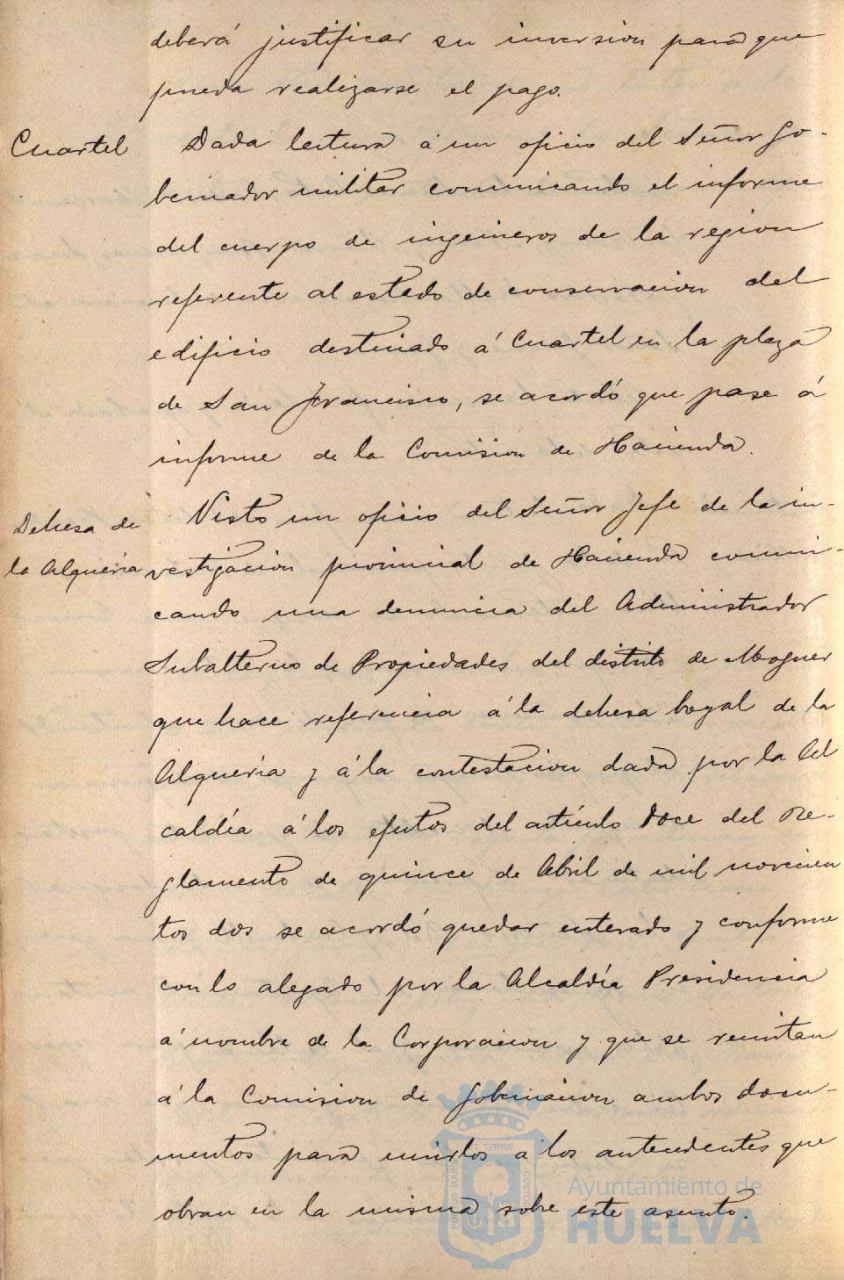 deberá justificar su inversion para que
pueda realizarse el pago.
Cuartel
Dada lectura á un oficio del Señor Go-
bernador militar comunicando el informe
del cuerpo de ingenieros de la region
referente al estado de conservacion del
edificio destinado á Cuartel en la plaza
de San Francisco, se acordó que pase á
informe de la Comision de Hacienda.
Dehesa de
la Alquería
Visto un oficio del Señor Jefe de la in-
vestigacion provincial de Hacienda comuni-
cando una denuncia del Administrador
Subalterno de Propiedades del distrito de Moguer
que hace referencia á la dehesa boyal de la
Alquería y á la contestacion dada por la Al
caldía á los efectos del artículo doce del Re-
glamento de quince de Abril de mil novecien
tos dos se acordó quedar enterado y conforme
con lo alegado por la Alcaldía Presidencia
á nombre de la Corporacion y que se remitan
á la Comision de Gobernacion ambos docu-
mentos para unirlos á los antecedentes que
obran en la misma sobre este asunto.
Ayuntamiento de
HUELVA